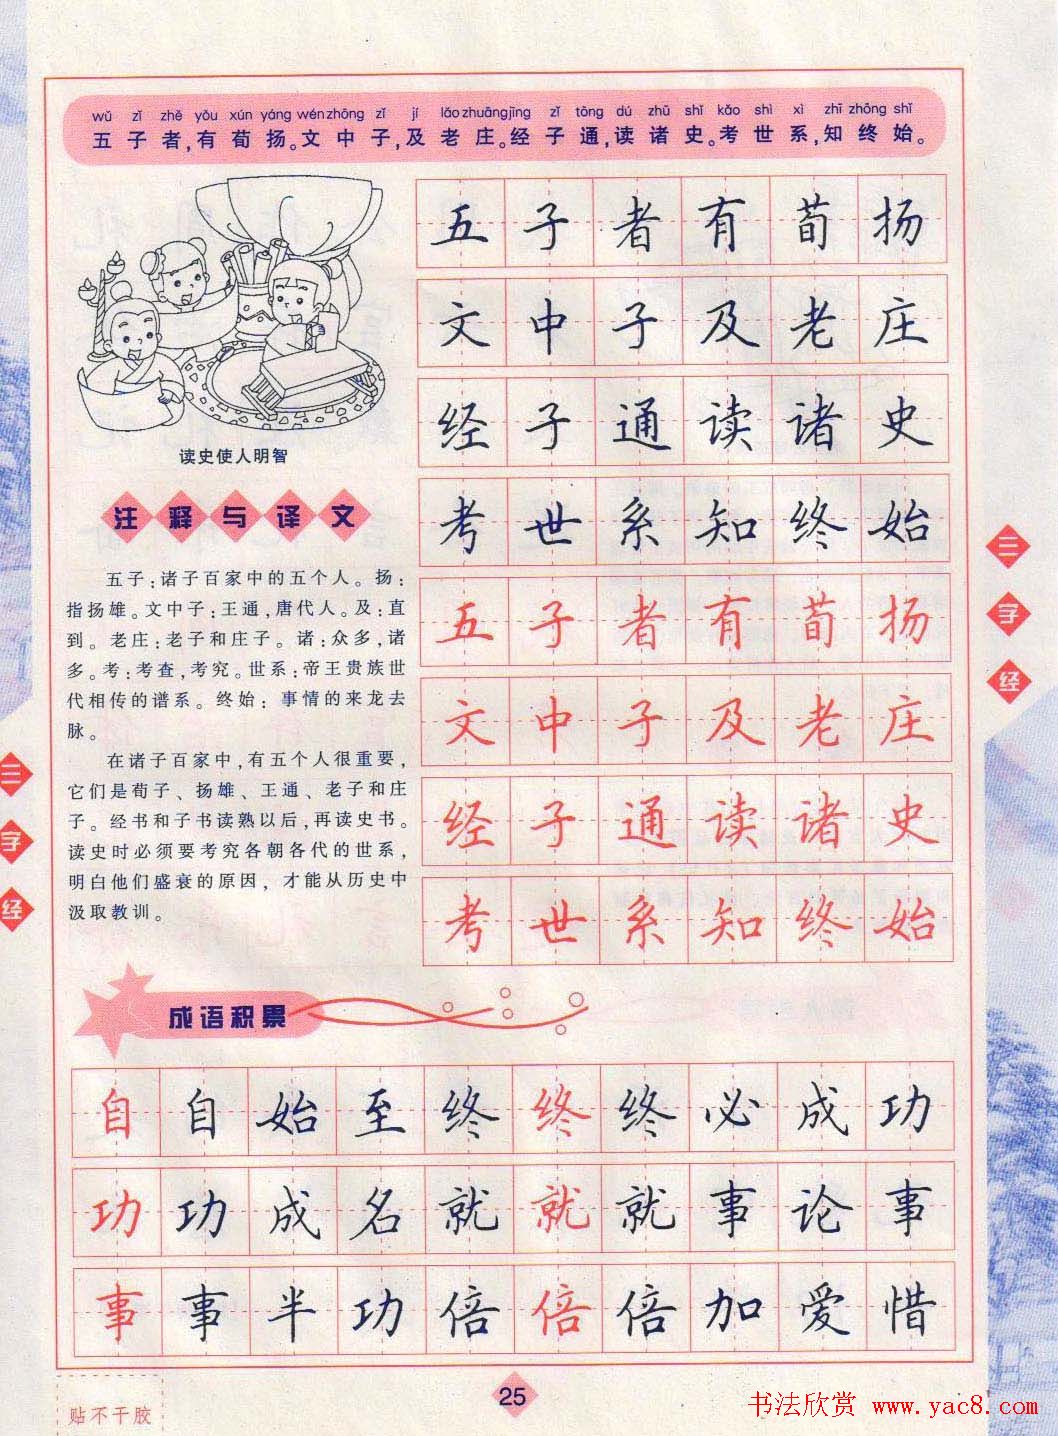 wǔ zǐ zhě yǒu xún yáng wén zhōng zǐ jí lǎo zhuāng jīng zǐ tōng dú zhū shǐ kǎo shì xì zhī zhōng shǐ
五子者,有荀扬。文中子,及老庄。经子通,读诸史。考世系,知终始。
五子者有荀扬
文中子及老庄
经子通读诸史
考世系知终始
五子者有荀扬
文中子及老庄
经子通读诸史
考世系知终始
读史使人明智
注释与译文
五子:诸子百家中的五个人。扬:
指扬雄。文中子:王通,唐代人。及:直
到。老庄:老子和庄子。诸:众多,诸
多。考:考查,考究。世系:帝王贵族世
代相传的谱系。终始:事情的来龙去
脉。
在诸子百家中,有五个人很重要,
它们是荀子、扬雄、王通、老子和庄
子。经书和子书读熟以后,再读史书。
读史时必须要考究各朝各代的世系,
明白他们盛衰的原因,才能从历史中
汲取教训。
成语积累
自自始至终终终必成功
功功成名就就就事论事
事事半功倍倍倍加爱惜
三字经
三字经
25
贴不干胶
书法欣赏 www.yac8.com